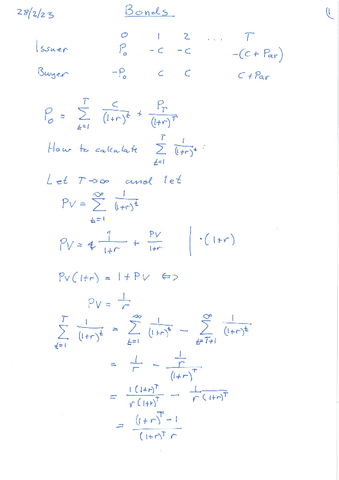 28/2/23 Bonds 1
0 1 2 ... T
Issuer P₀ -C -C -(C + Par)
Buyer -P₀ C C C + Par
P₀ = ∑_{t=1}^{T} C/(1+r)^t + P_T/(1+r)^T
How to calculate ∑_{t=1}^{T} 1/(1+r)^t :
Let T→∞ and let
PV = ∑_{t=1}^{∞} 1/(1+r)^t
PV = 1/(1+r) + PV/(1+r) | ·(1+r)
PV(1+r) = 1 + PV <=>
PV = 1/r
∑_{t=1}^{T} 1/(1+r)^t = ∑_{t=1}^{∞} 1/(1+r)^t - ∑_{t=T+1}^{∞} 1/(1+r)^t
= 1/r - (1/r)/(1+r)^T
= 1(1+r)^T/r(1+r)^T - 1/r(1+r)^T
= ((1+r)^T - 1)/((1+r)^T r)